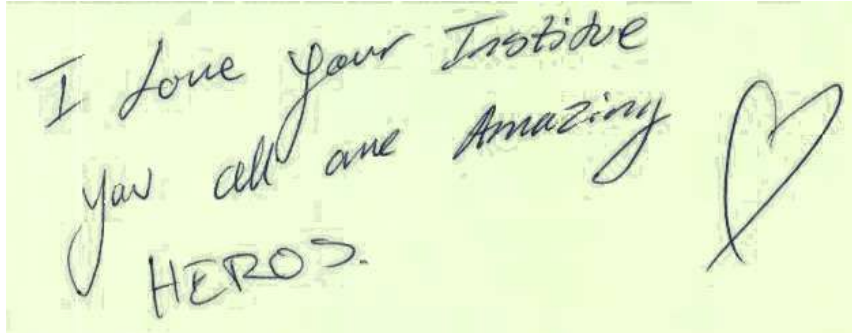 I Love your Institue
you all are Amazing
HEROS.